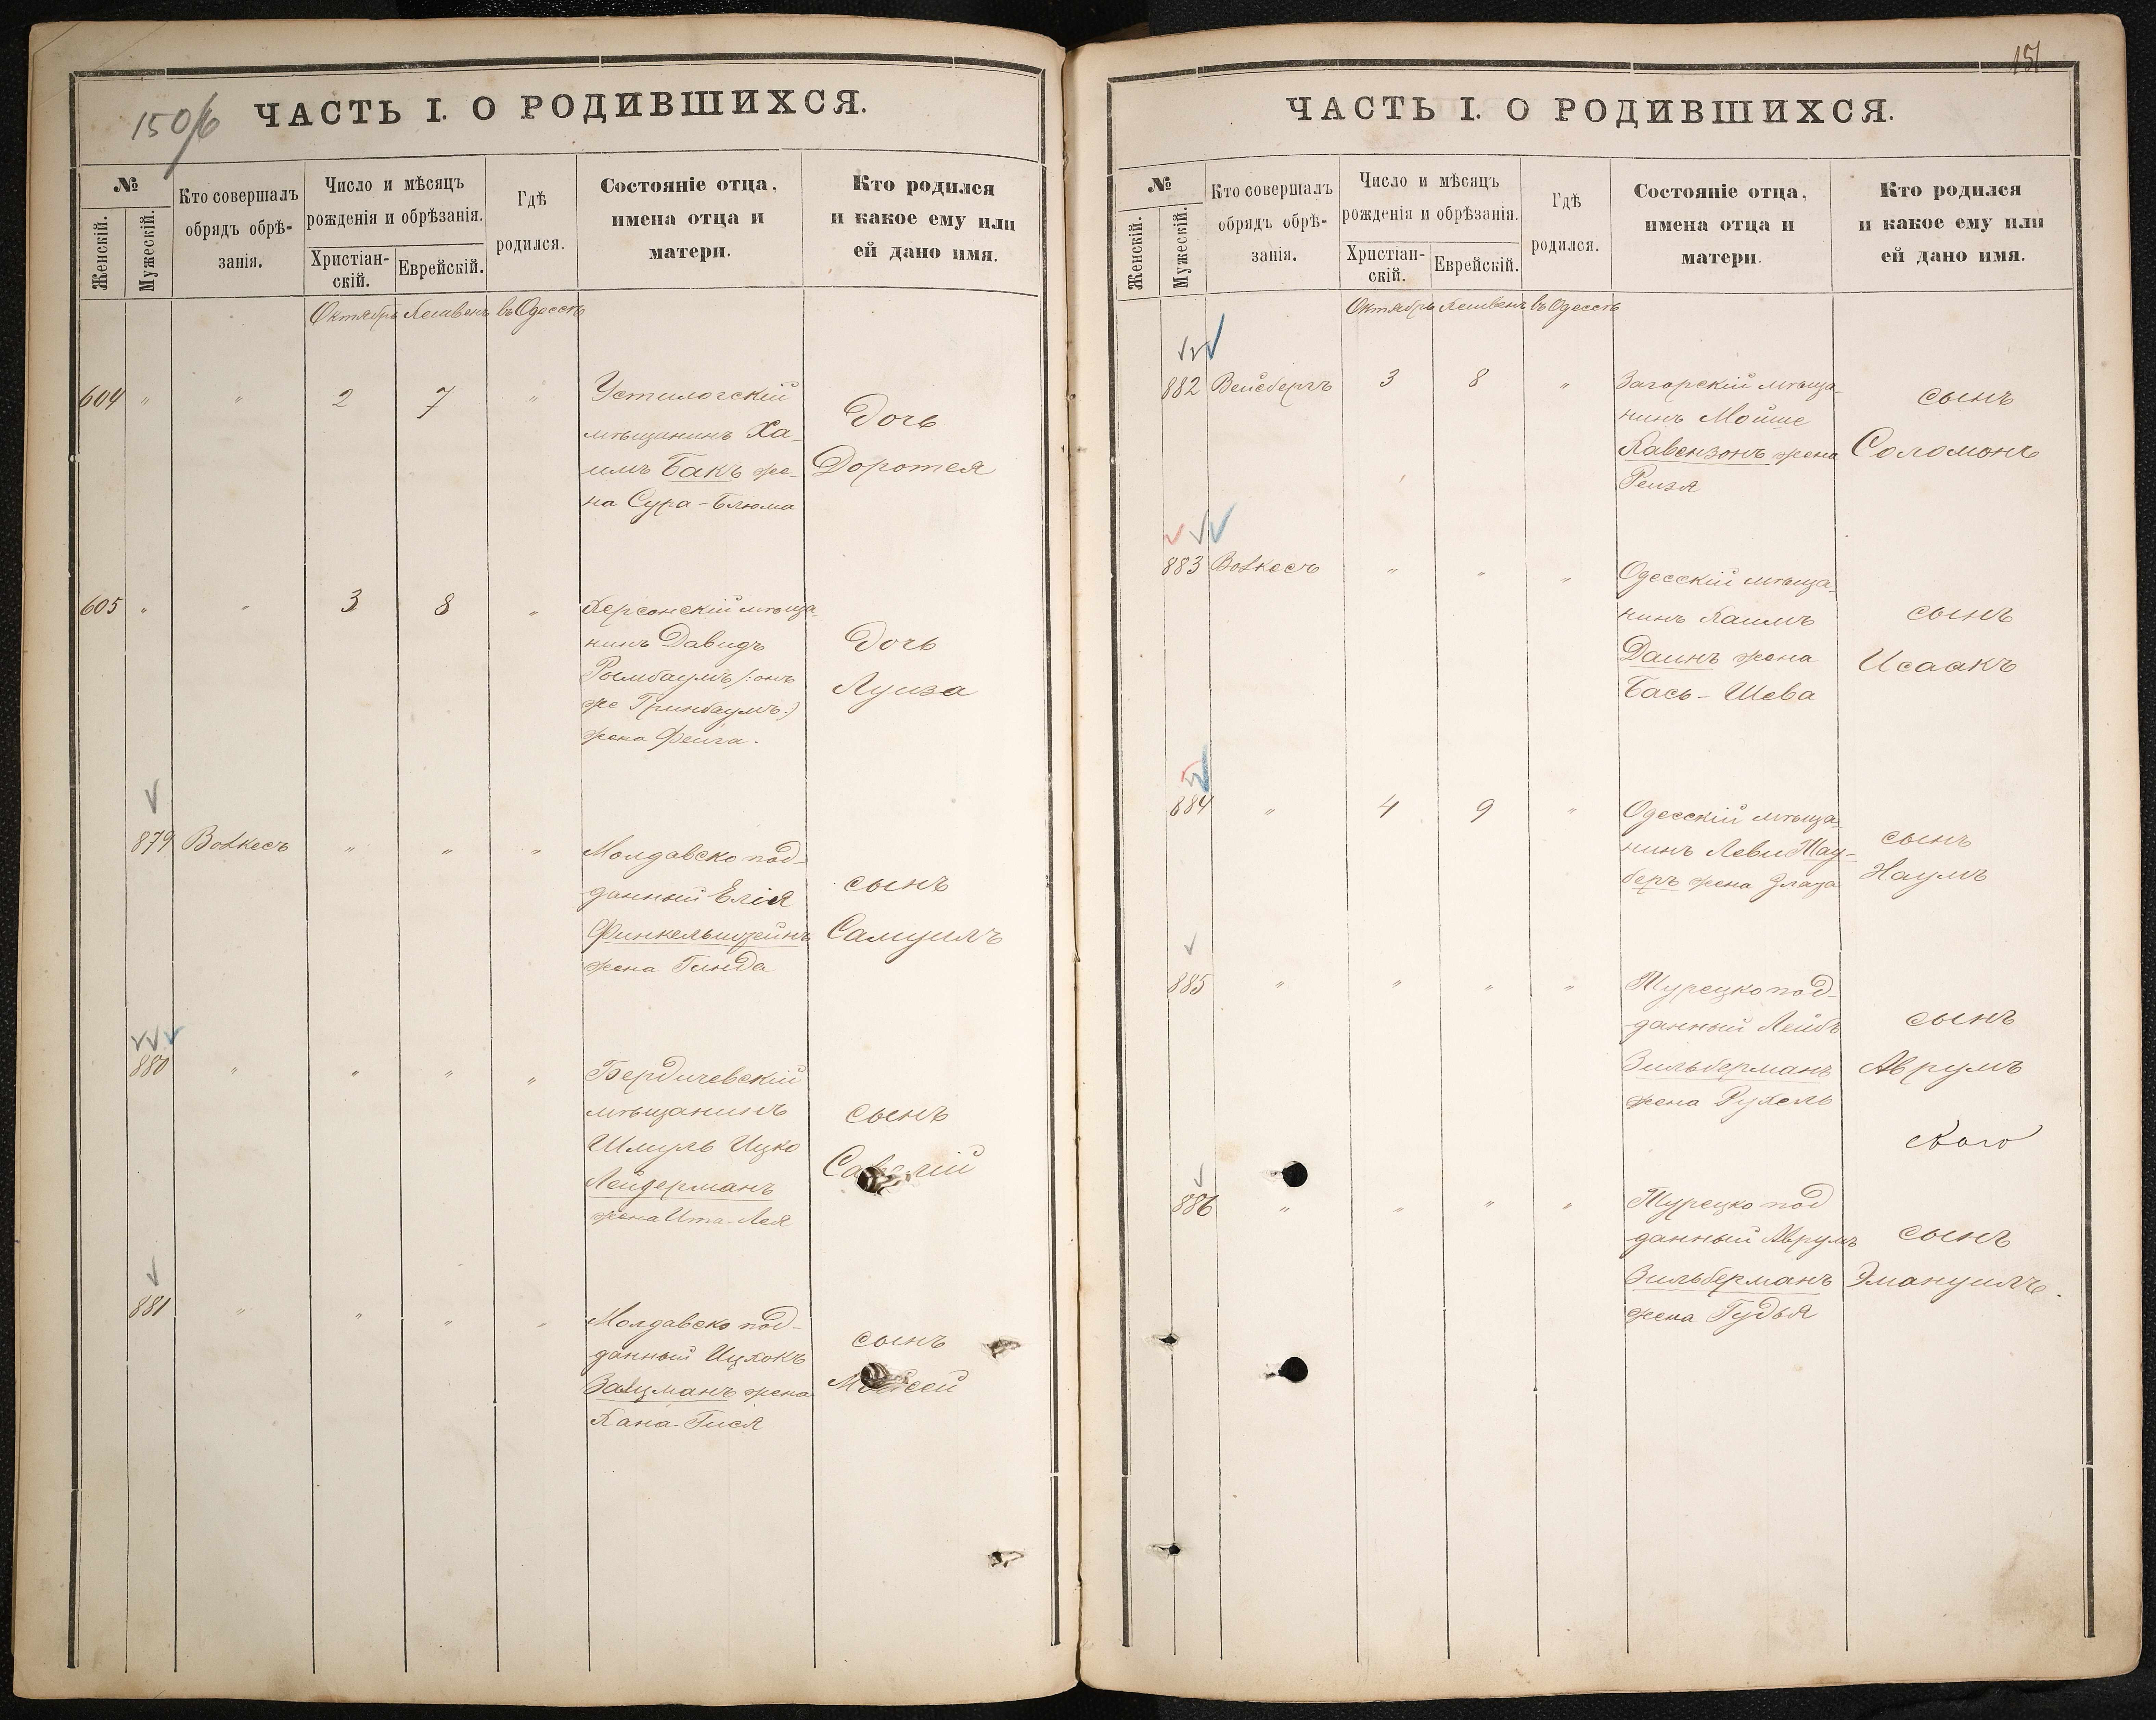 150/б
ЧАСТЬ I. О РОДИВШИХСЯ.
№
Женскій.
Мужескій.
Кто совершалъ
обрядъ обрѣ-
занія.
Число и мѣсяцъ
рожденія и обрѣзанія.
Христіан-
скій.
Еврейскій.
Гдѣ
родился.
Состояніе отца,
имена отца и
матери.
Кто родился
и какое ему или
ей дано имя.
Октябрь Хешвенъ въ Одессѣ
604 " " 2 7 " Устилогскій
мѣщанинъ Ха-
имъ Бакъ же-
на Сура-Блюма
Дочь
Доротея
605 " " 3 8 " Херсонскій мѣща-
нинъ Давидъ
Роимбаумъ /: онъ
же Гринбаумъ :)
жена Фейга.
Дочь
Луиза
879 Волкесъ " " " Молдавско под-
данный Елія
Финкельштейнъ
жена Гинда
сынъ
Самуилъ
880 " " " " Бердичевскій
мѣщанинъ
Шмуль Ицко
Лейдерманъ
жена Ита-Лея
сынъ
881 " " " " Молдавско под-
данный Ицхокъ
Залцманъ жена
Хана-Гися
сынъ
Мойсей
151
ЧАСТЬ I. О РОДИВШИХСЯ.
№
Женскій.
Мужескій.
Кто совершалъ
обрядъ обрѣ-
занія.
Число и мѣсяцъ
рожденія и обрѣзанія.
Христіан-
скій.
Еврейскій.
Гдѣ
родился.
Состояніе отца,
имена отца и
матери.
Кто родился
и какое ему или
ей дано имя.
Октябрь Хешвенъ въ Одессѣ
882 Вейсбергъ 3 8 " Загорскій мѣща-
нинъ Мойше
Кавензонъ жена
Рейзя
сынъ
Соломонъ
883 Волкесъ " " " Одесскій мѣща-
нинъ Хаимъ
Даинъ жена
Бась-Шева
сынъ
Исаакъ
884 " 4 9 " Одесскій мѣща-
нинъ Леви Тау-
беръ жена Злата
сынъ
Наумъ
885 " " " " Турецко под-
данный Лейбъ
Зильберманъ
жена Рухель
сынъ
Аврумъ
886 " " " " Турецко под
данный Аврумъ
Зильберманъ
жена Гудья
сынъ
Эмануилъ.